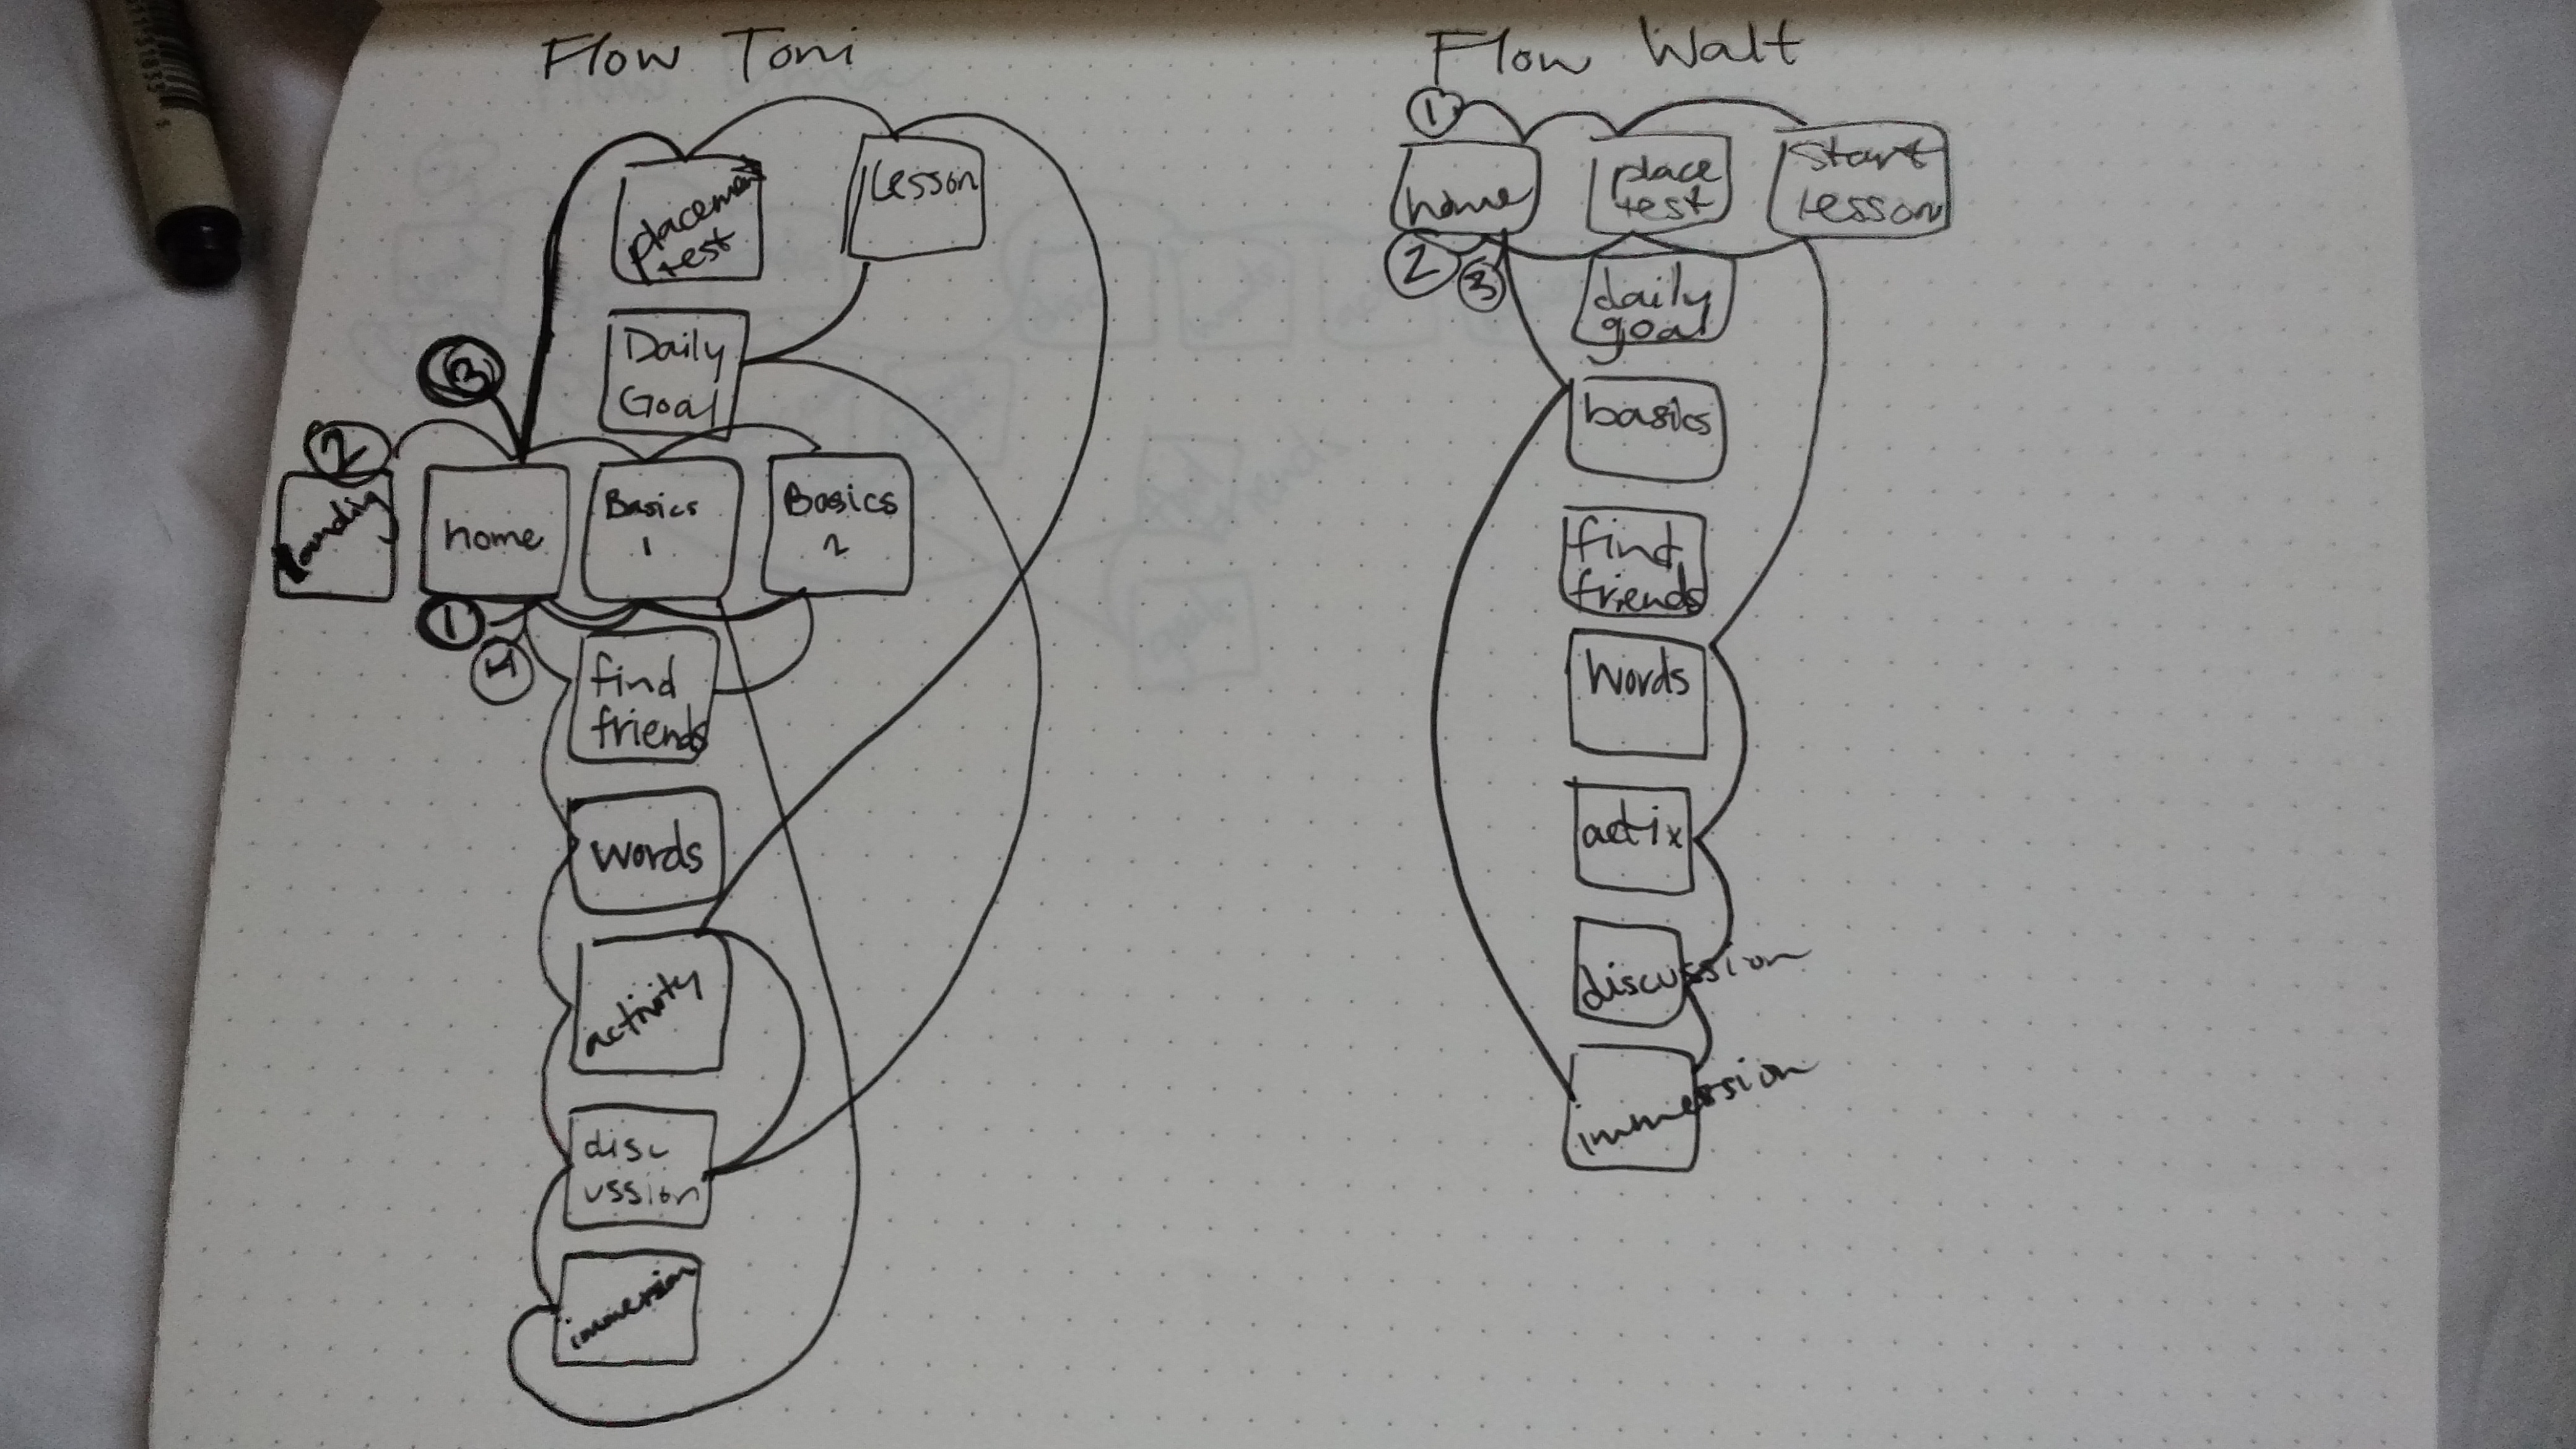 Flow Toni
placement
test
Lesson
Daily
Goal
3
2
landing
home
Basics
1
Basics
2
1
4
find
friends
words
activity
disc
ussion
immersion
Flow Walt
1
home
place
test
start
lesson
2
3
daily
goal
basics
find
friends
Words
actix
discussion
immersion